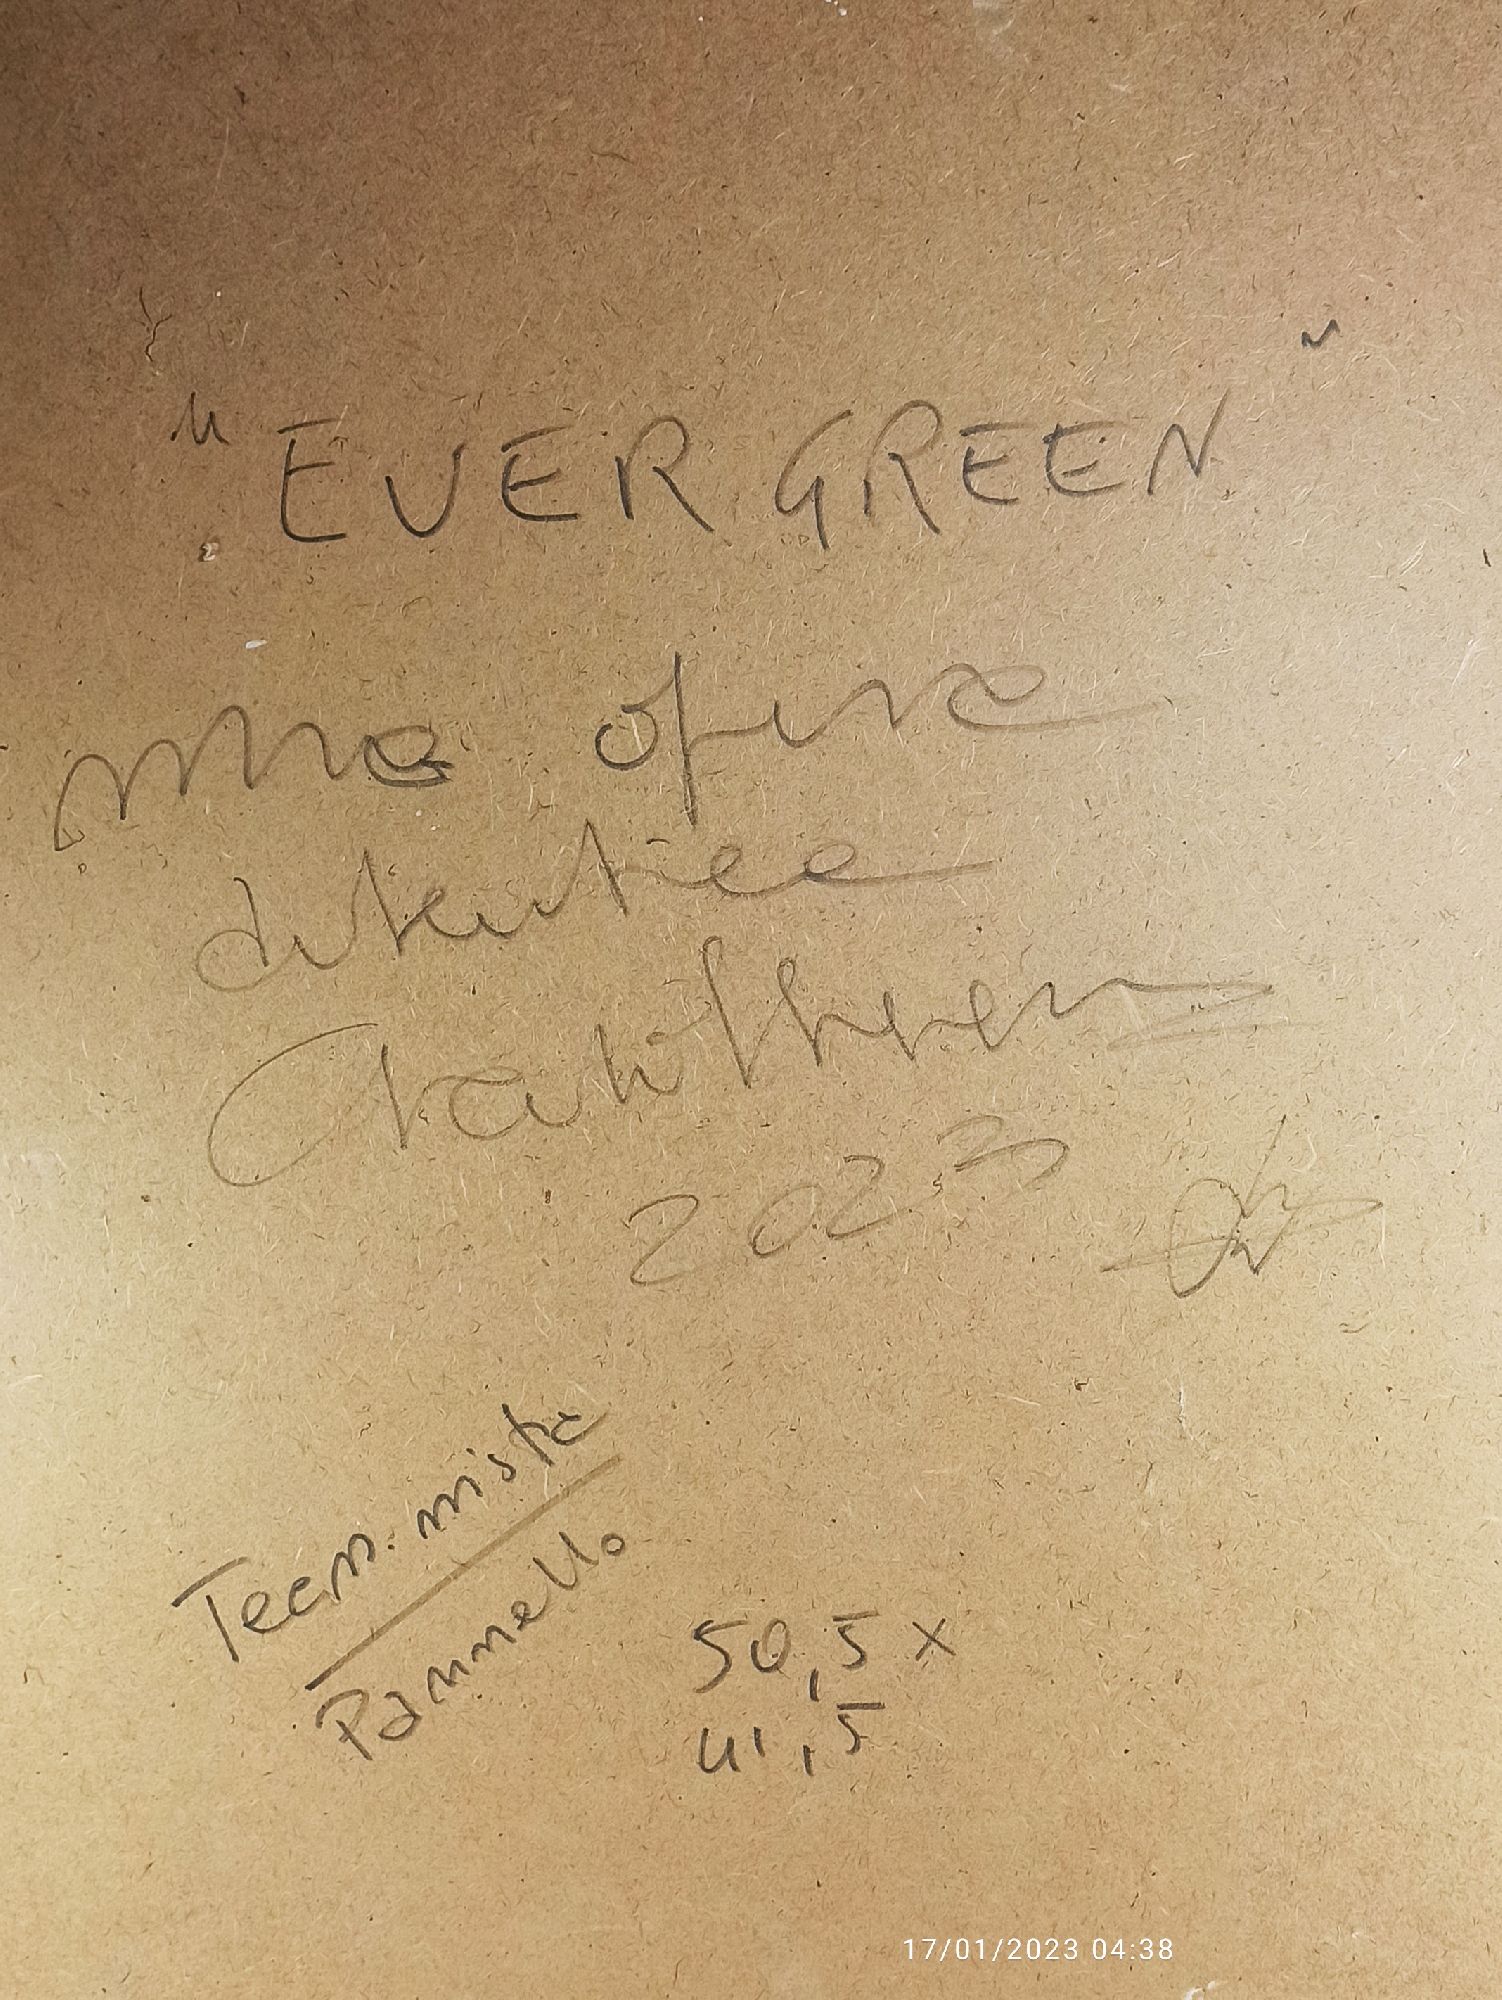 "EVER GREEN"
mia opera
autentica
2023
Tecn. mista
Pannello
50,5 x
41,5
17/01/2023 04:38